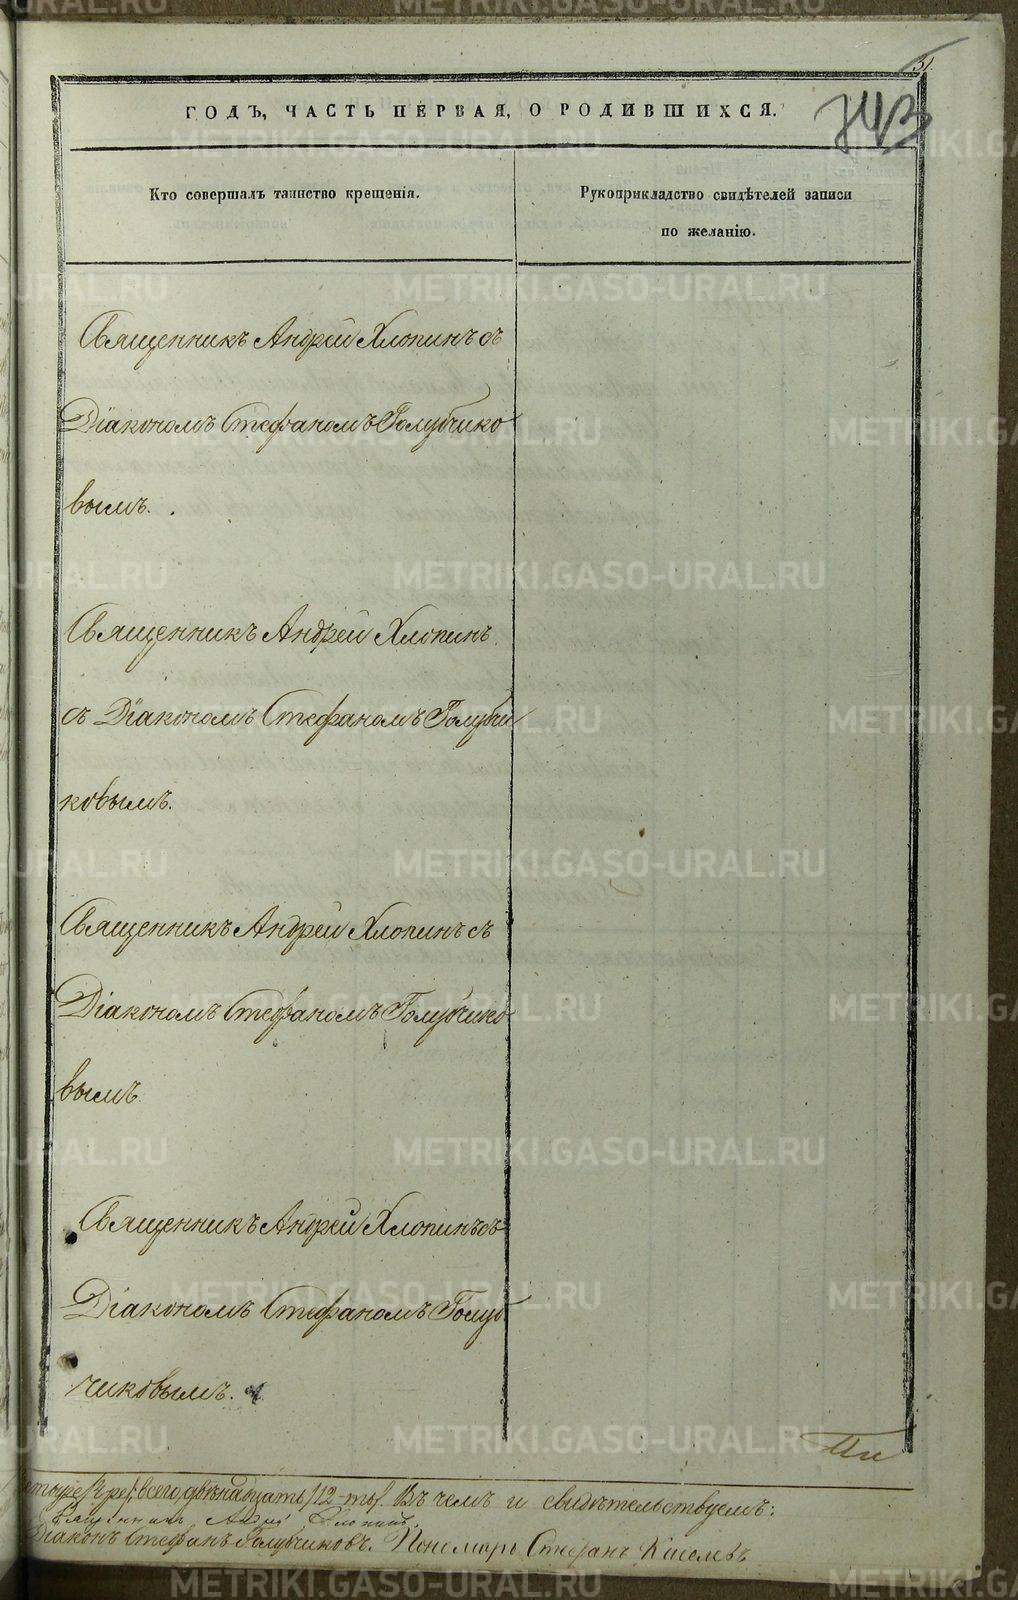 31.
ГОДЪ, ЧАСТЬ ПЕРВАЯ, О РОДИВШИХСЯ.
Кто совершалъ таинство крещенія.
Рукоприкладство свидѣтелей записи
по желанію.
Священникъ Андрей Хлопинъ съ
Діакономъ Стефаномъ Голубчико
вымъ.
Священникъ Андрей Хлопинъ
съ Діакономъ Стефаномъ Голубчи
ковымъ.
Священникъ Андрей Хлопинъ съ
Діакономъ Стефаномъ Голубчико
вымъ
Священникъ Андрей Хлопинъ съ
Діакономъ Стефаномъ Голуб
чиковымъ.
всего двѣнадцать /12-ть/. Въ чемъ и свидѣтельствуемъ:
Священникъ Андрей Хлопинъ.
Діаконъ Стефанъ Голубчиковъ. Пономарь Стефанъ Киселевъ
METRIKI.GASO-URAL.RU